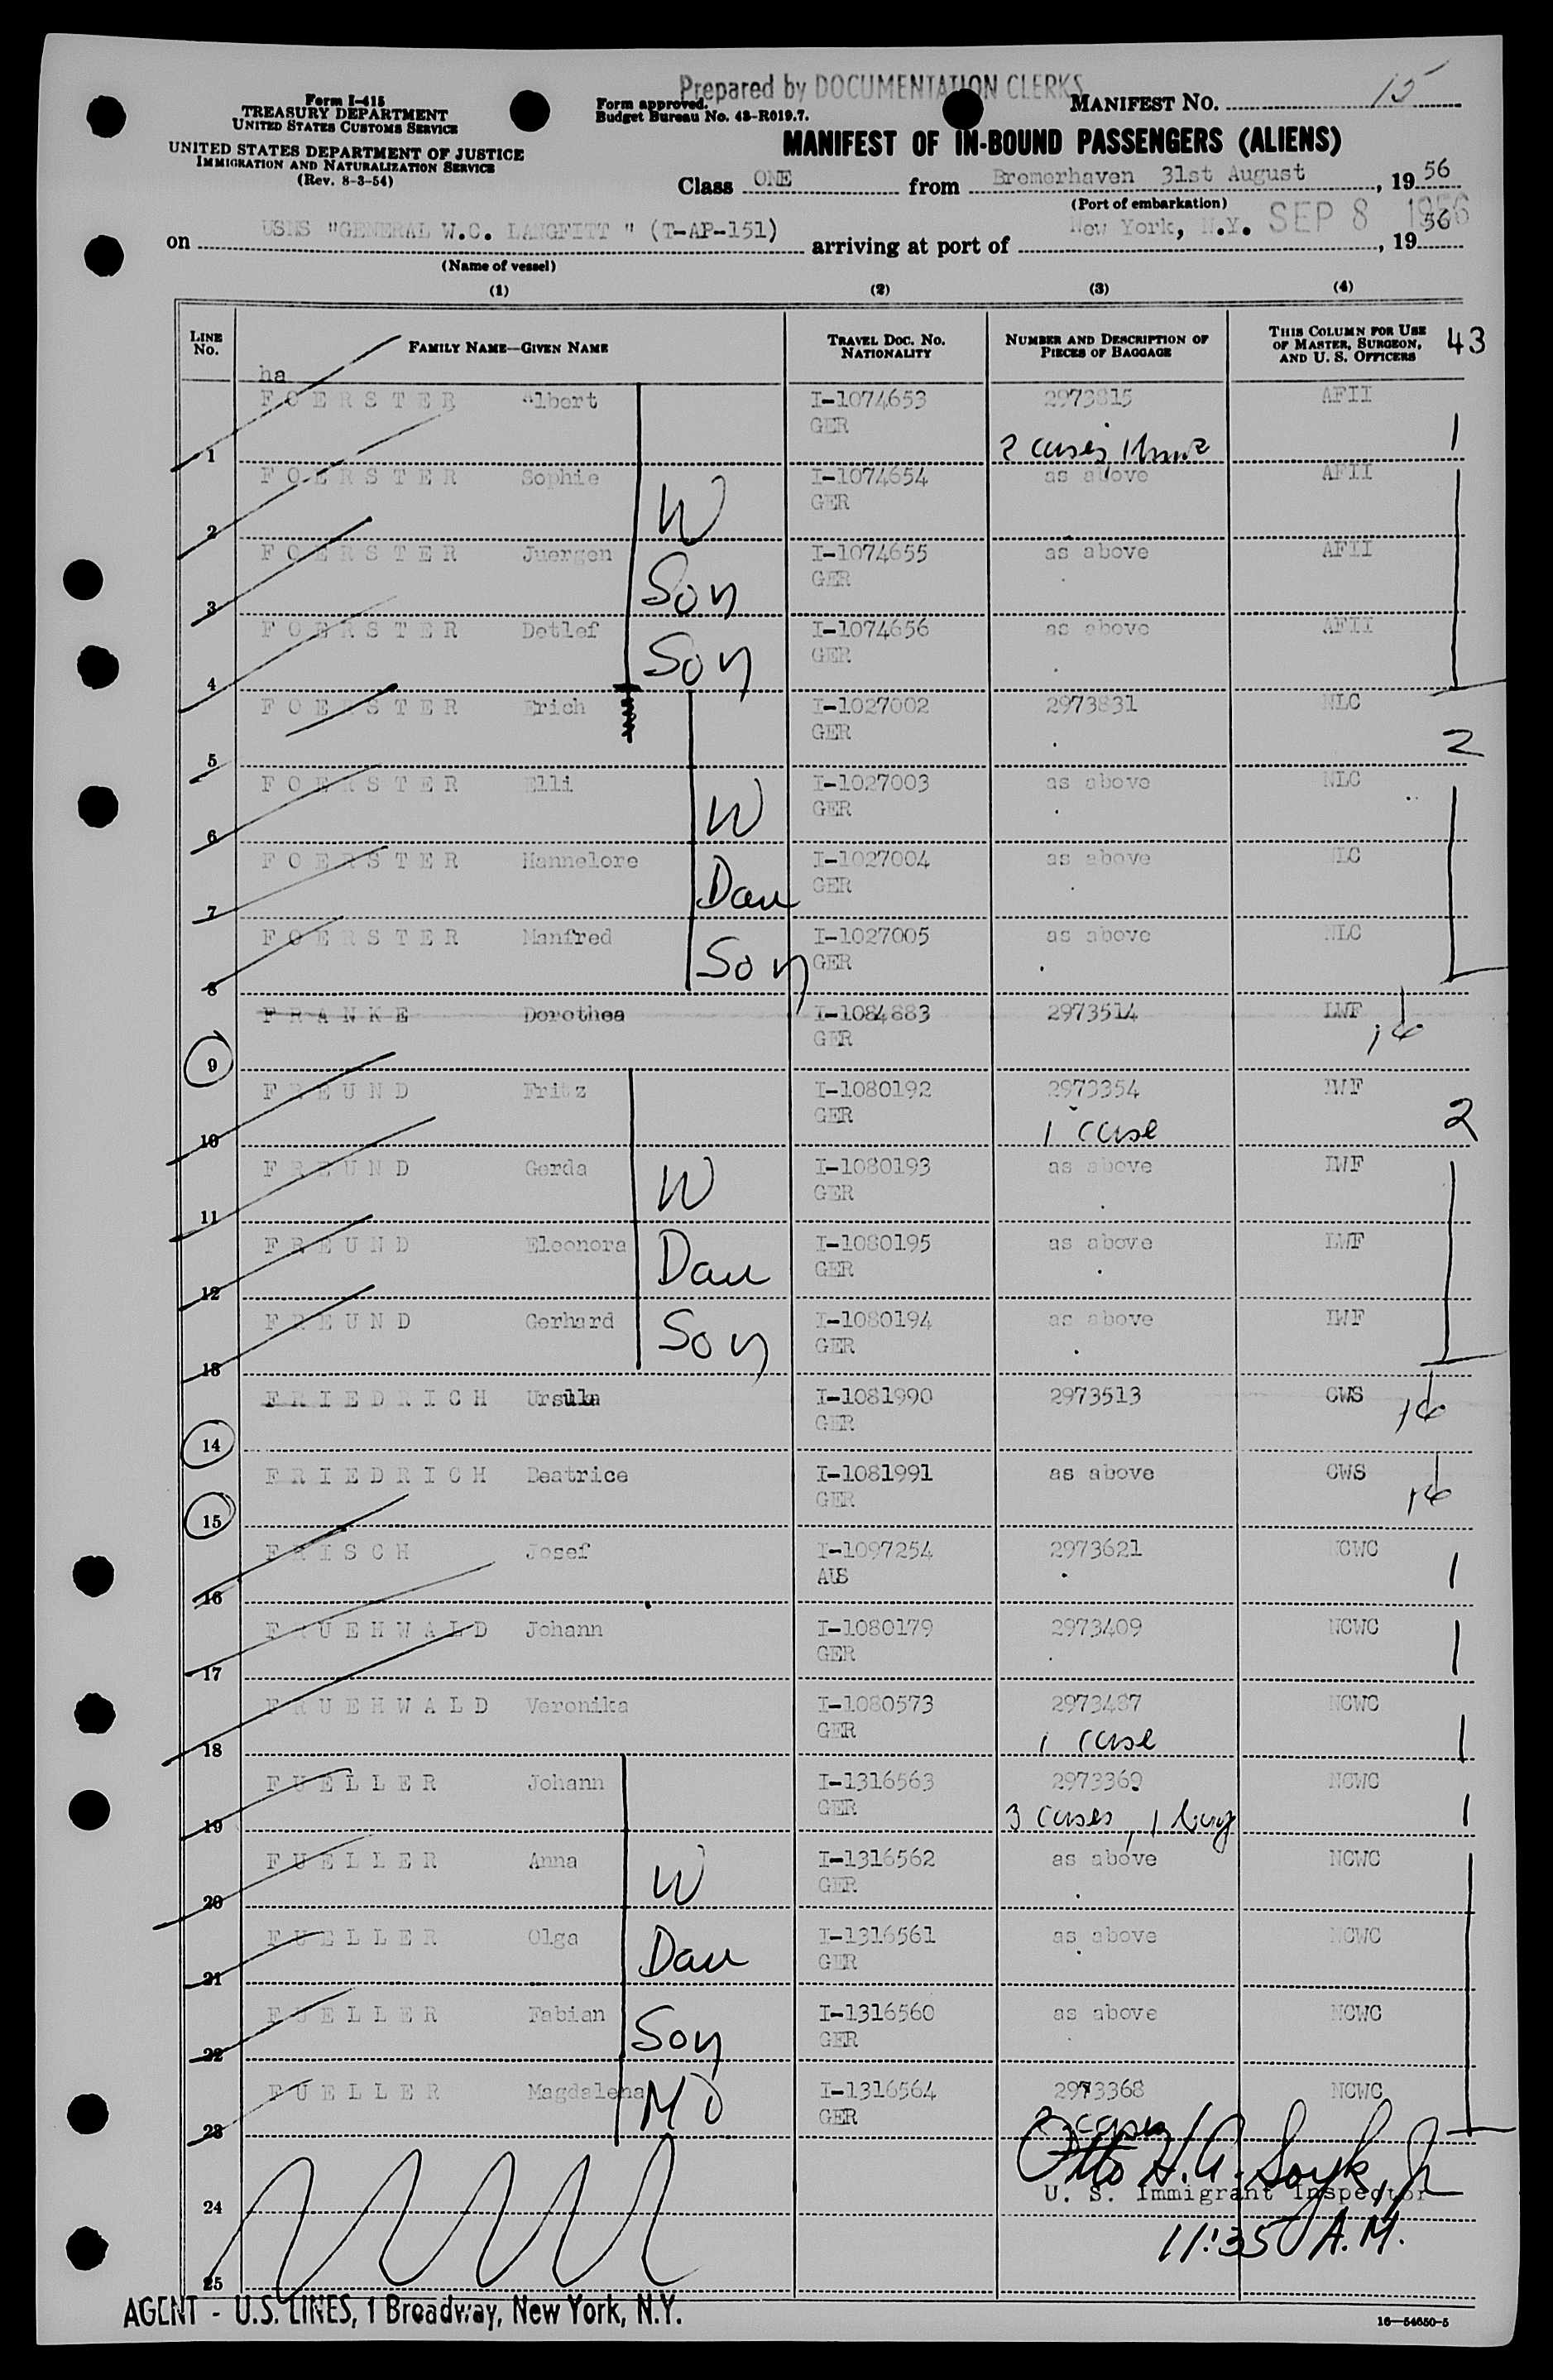 Prepared by DOCUMENTATION CLERKS
Form I-415
TREASURY DEPARTMENT
UNITED STATES CUSTOMS SERVICE
UNITED STATES DEPARTMENT OF JUSTICE
IMMIGRATION AND NATURALIZATION SERVICE
(Rev. 8-3-54)
Form approved.
Budget Bureau No. 43-R019.7.
MANIFEST NO. 15
MANIFEST OF IN-BOUND PASSENGERS (ALIENS)
Class ONE from Bremerhaven 31st August, 1956
(Port of embarkation)
on USNS "GENERAL W.C. LANGFITT " (T-AP-151) arriving at port of New York, N.Y. SEP 8 1956, 1956
(Name of vessel)
(1) (2) (3) (4)
LINE No. FAMILY NAME—GIVEN NAME TRAVEL DOC. NO. NATIONALITY NUMBER AND DESCRIPTION OF PIECES OF BAGGAGE THIS COLUMN FOR USE OF MASTER, SURGEON, AND U. S. OFFICERS 43
ha
FOERSTER Albert I-1074653 2973815 AFII
GER
1 2 cases, 1 1
FOERSTER Sophie I-1074654 as above AFII
W GER
2
FOERSTER Juergen I-1074655 as above AFII
Son GER
3
FOERSTER Detlef I-1074656 as above AFII
Son GER
4
FOERSTER Erich I-1027002 2973831 NLC
GER 2
5
FOERSTER Elli I-1027003 as above NLC
W GER
6
FOERSTER Hannelore I-1027004 as above NLC
Dau GER
7
FOERSTER Manfred I-1027005 as above NLC
Son GER
8
FRANKE Dorothea I-1084883 2973514 LWF
GER
9
FREUND Fritz I-1080192 2973354 LWF
GER
10 1 case 2
FREUND Gerda I-1080193 as above LWF
W GER
11
FREUND Eleonora I-1080195 as above LWF
Dau GER
12
FREUND Gerhard I-1080194 as above LWF
Son GER
13
FRIEDRICH Ursula I-1081990 2973513 CWS
GER
14
FRIEDRICH Beatrice I-1081991 as above CWS
GER
15
FRISCH Josef I-1097254 2973621 NCWC
AUS 1
16
FRUEHWALD Johann I-1080179 2973409 NCWC
GER 1
17
FRUEHWALD Veronika I-1080573 2973487 NCWC
GER
18 1 case 1
FUELLER Johann I-1316563 2973360 NCWC
GER
19 3 cases, 1 bag 1
FUELLER Anna I-1316562 as above NCWC
W GER
20
FUELLER Olga I-1316561 as above NCWC
Dau GER
21
FUELLER Fabian I-1316560 as above NCWC
Son GER
22
FUELLER Magdalena I-1316564 2973368 NCWC
MO GER
23 2 cases
Otto H.A. Soyk, Jr
24 U. S. Immigrant Inspector
11:35 A.M.
25
AGENT - U.S. LINES, 1 Broadway, New York, N.Y.
16—54650-5